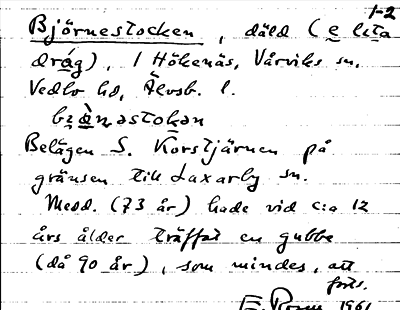 1-2
Björnestocken, däld (e lita
dråg), i Hökenäs, Vårviks sn,
Vedbo hd, Älvsb. l.
bjὰnəstokən
Belägen S. Korstjärnen på
gränsen till Laxarby sn.
Medd. (73 år) hade vid c:a 12
års ålder träffat en gubbe
(då 90 år), som mindes, att
forts.
1961